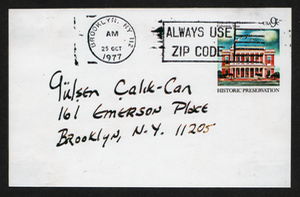 BROOKLYN, NY 112
AM
25 OCT
1977
ALWAYS USE
ZIP CODE
9¢
HISTORIC PRESERVATION
Gülşen Çalık-Can
161 EMERSON PLACE
BROOKLYN, N.Y. 11205